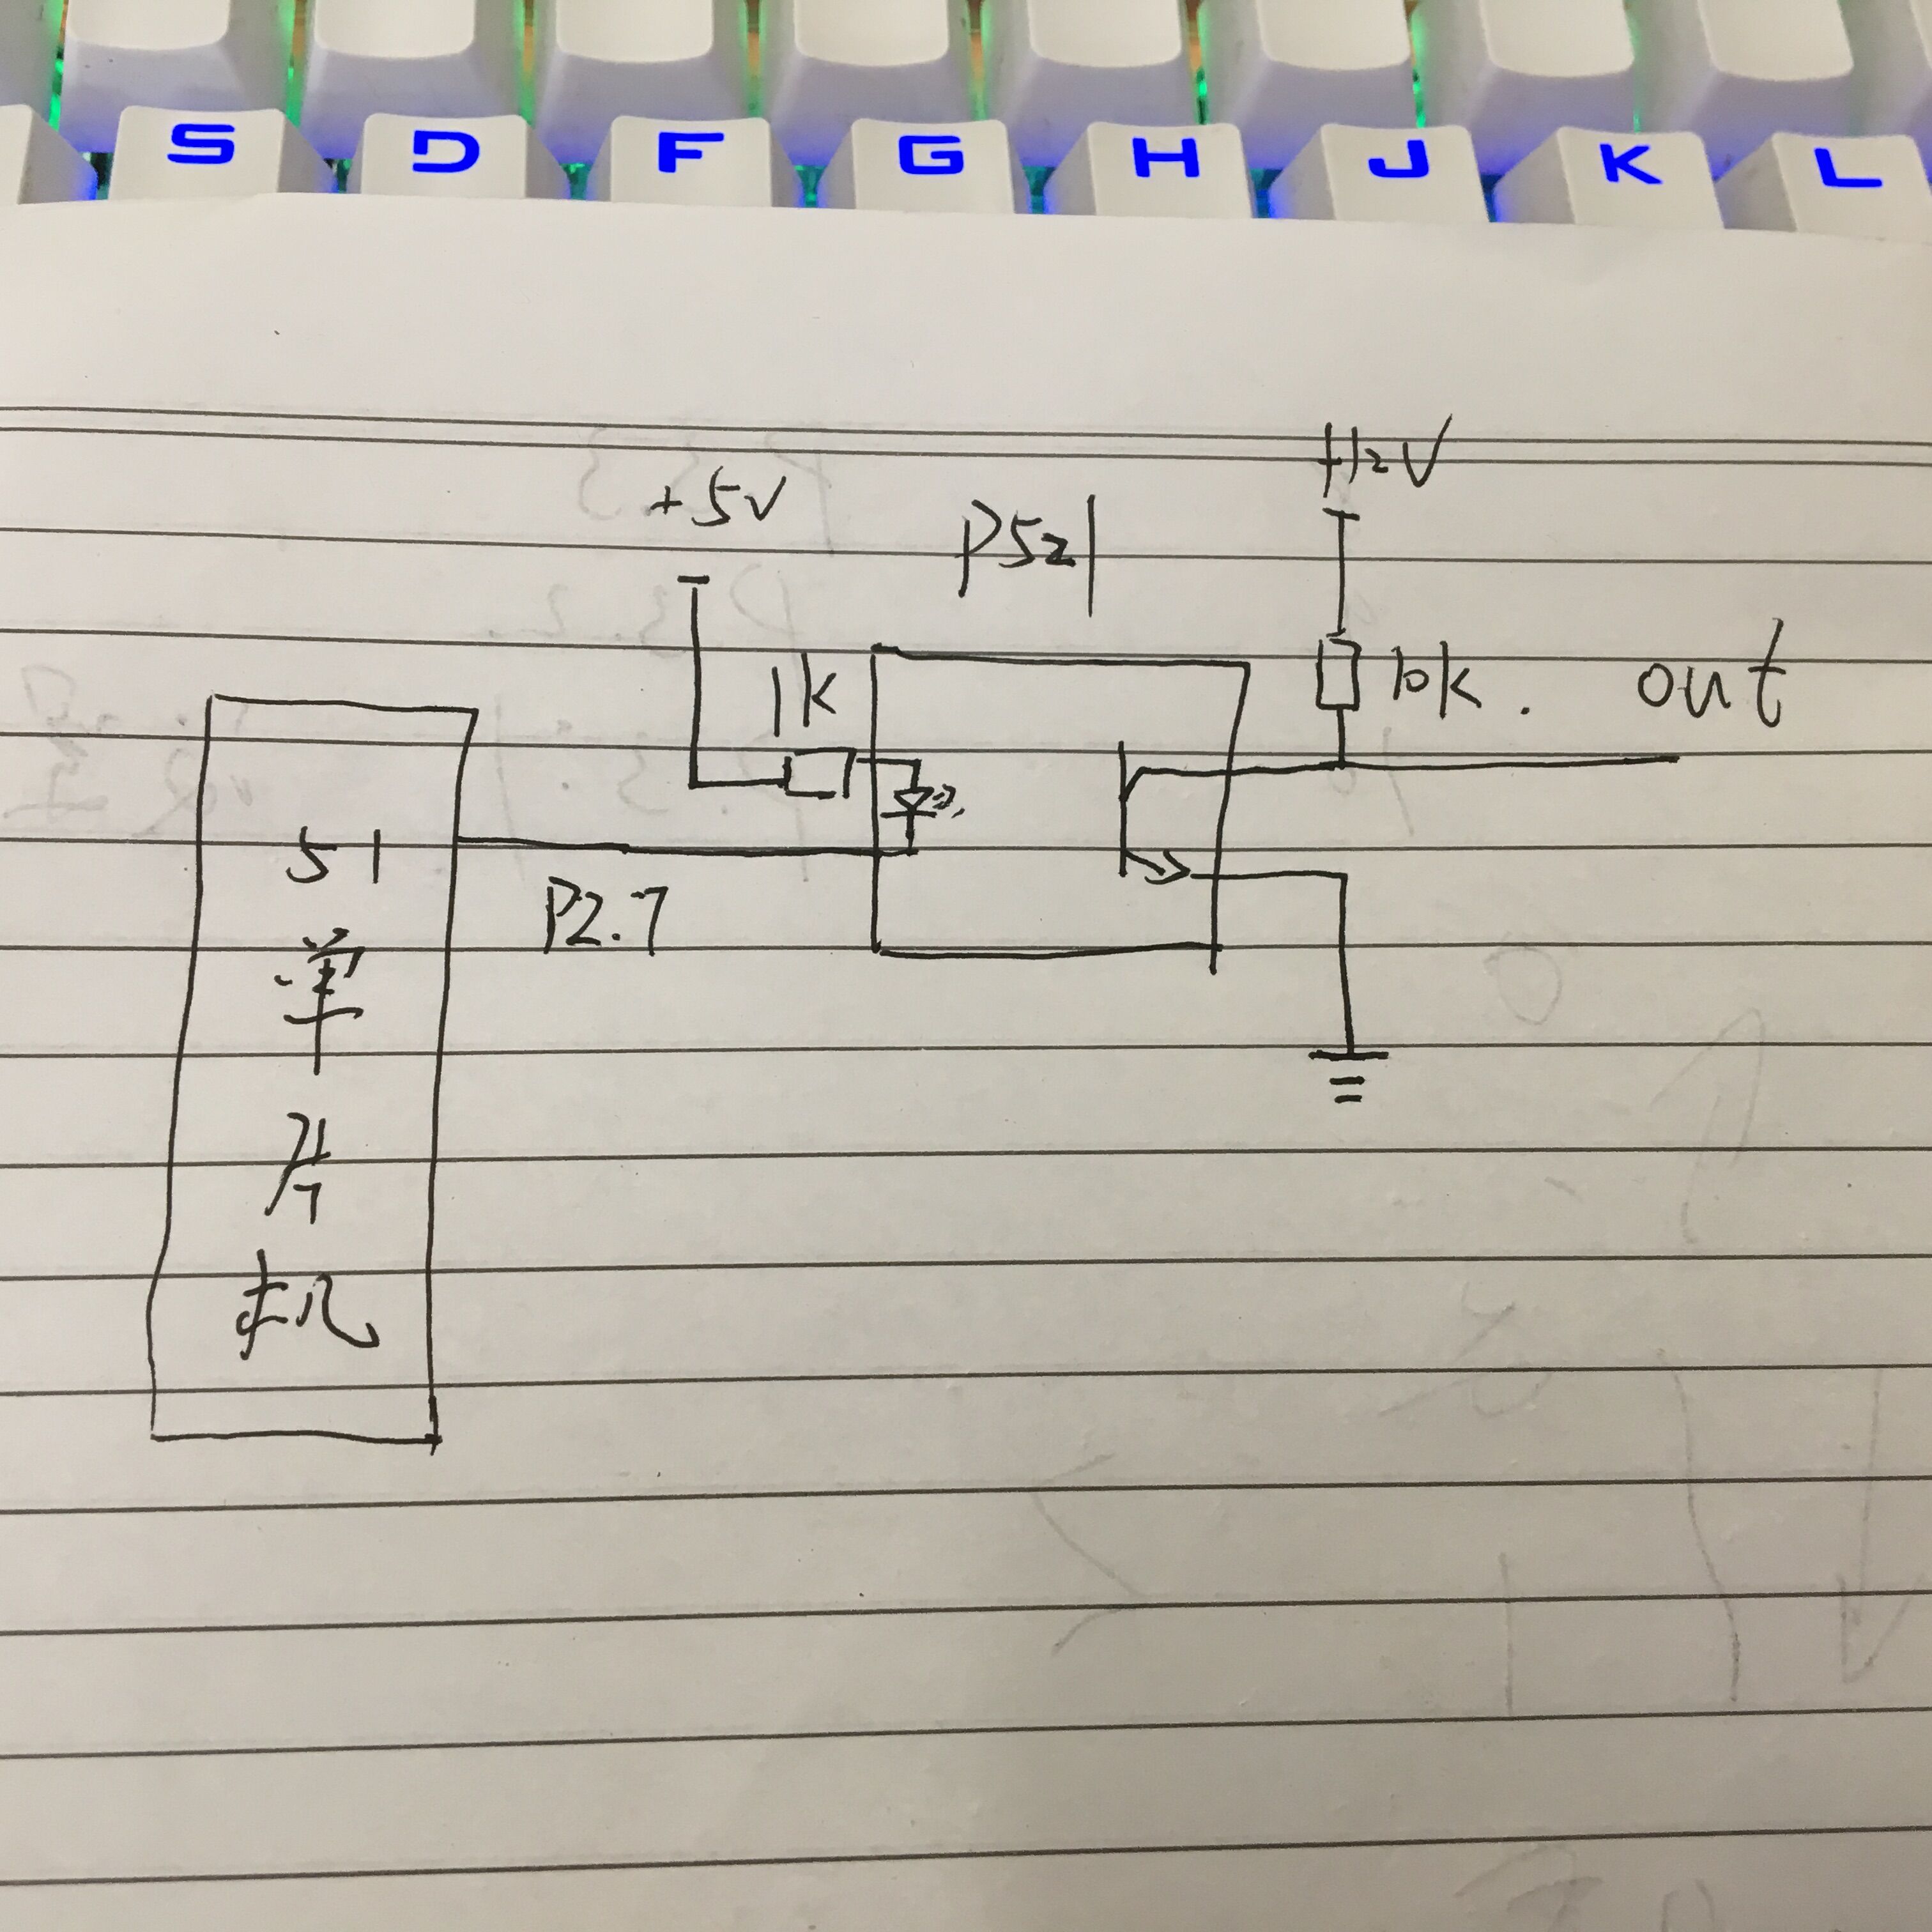 S D F G H J K L
+12V
+5V
P521
1K
10K.
out
51
单
片
机
P2.7